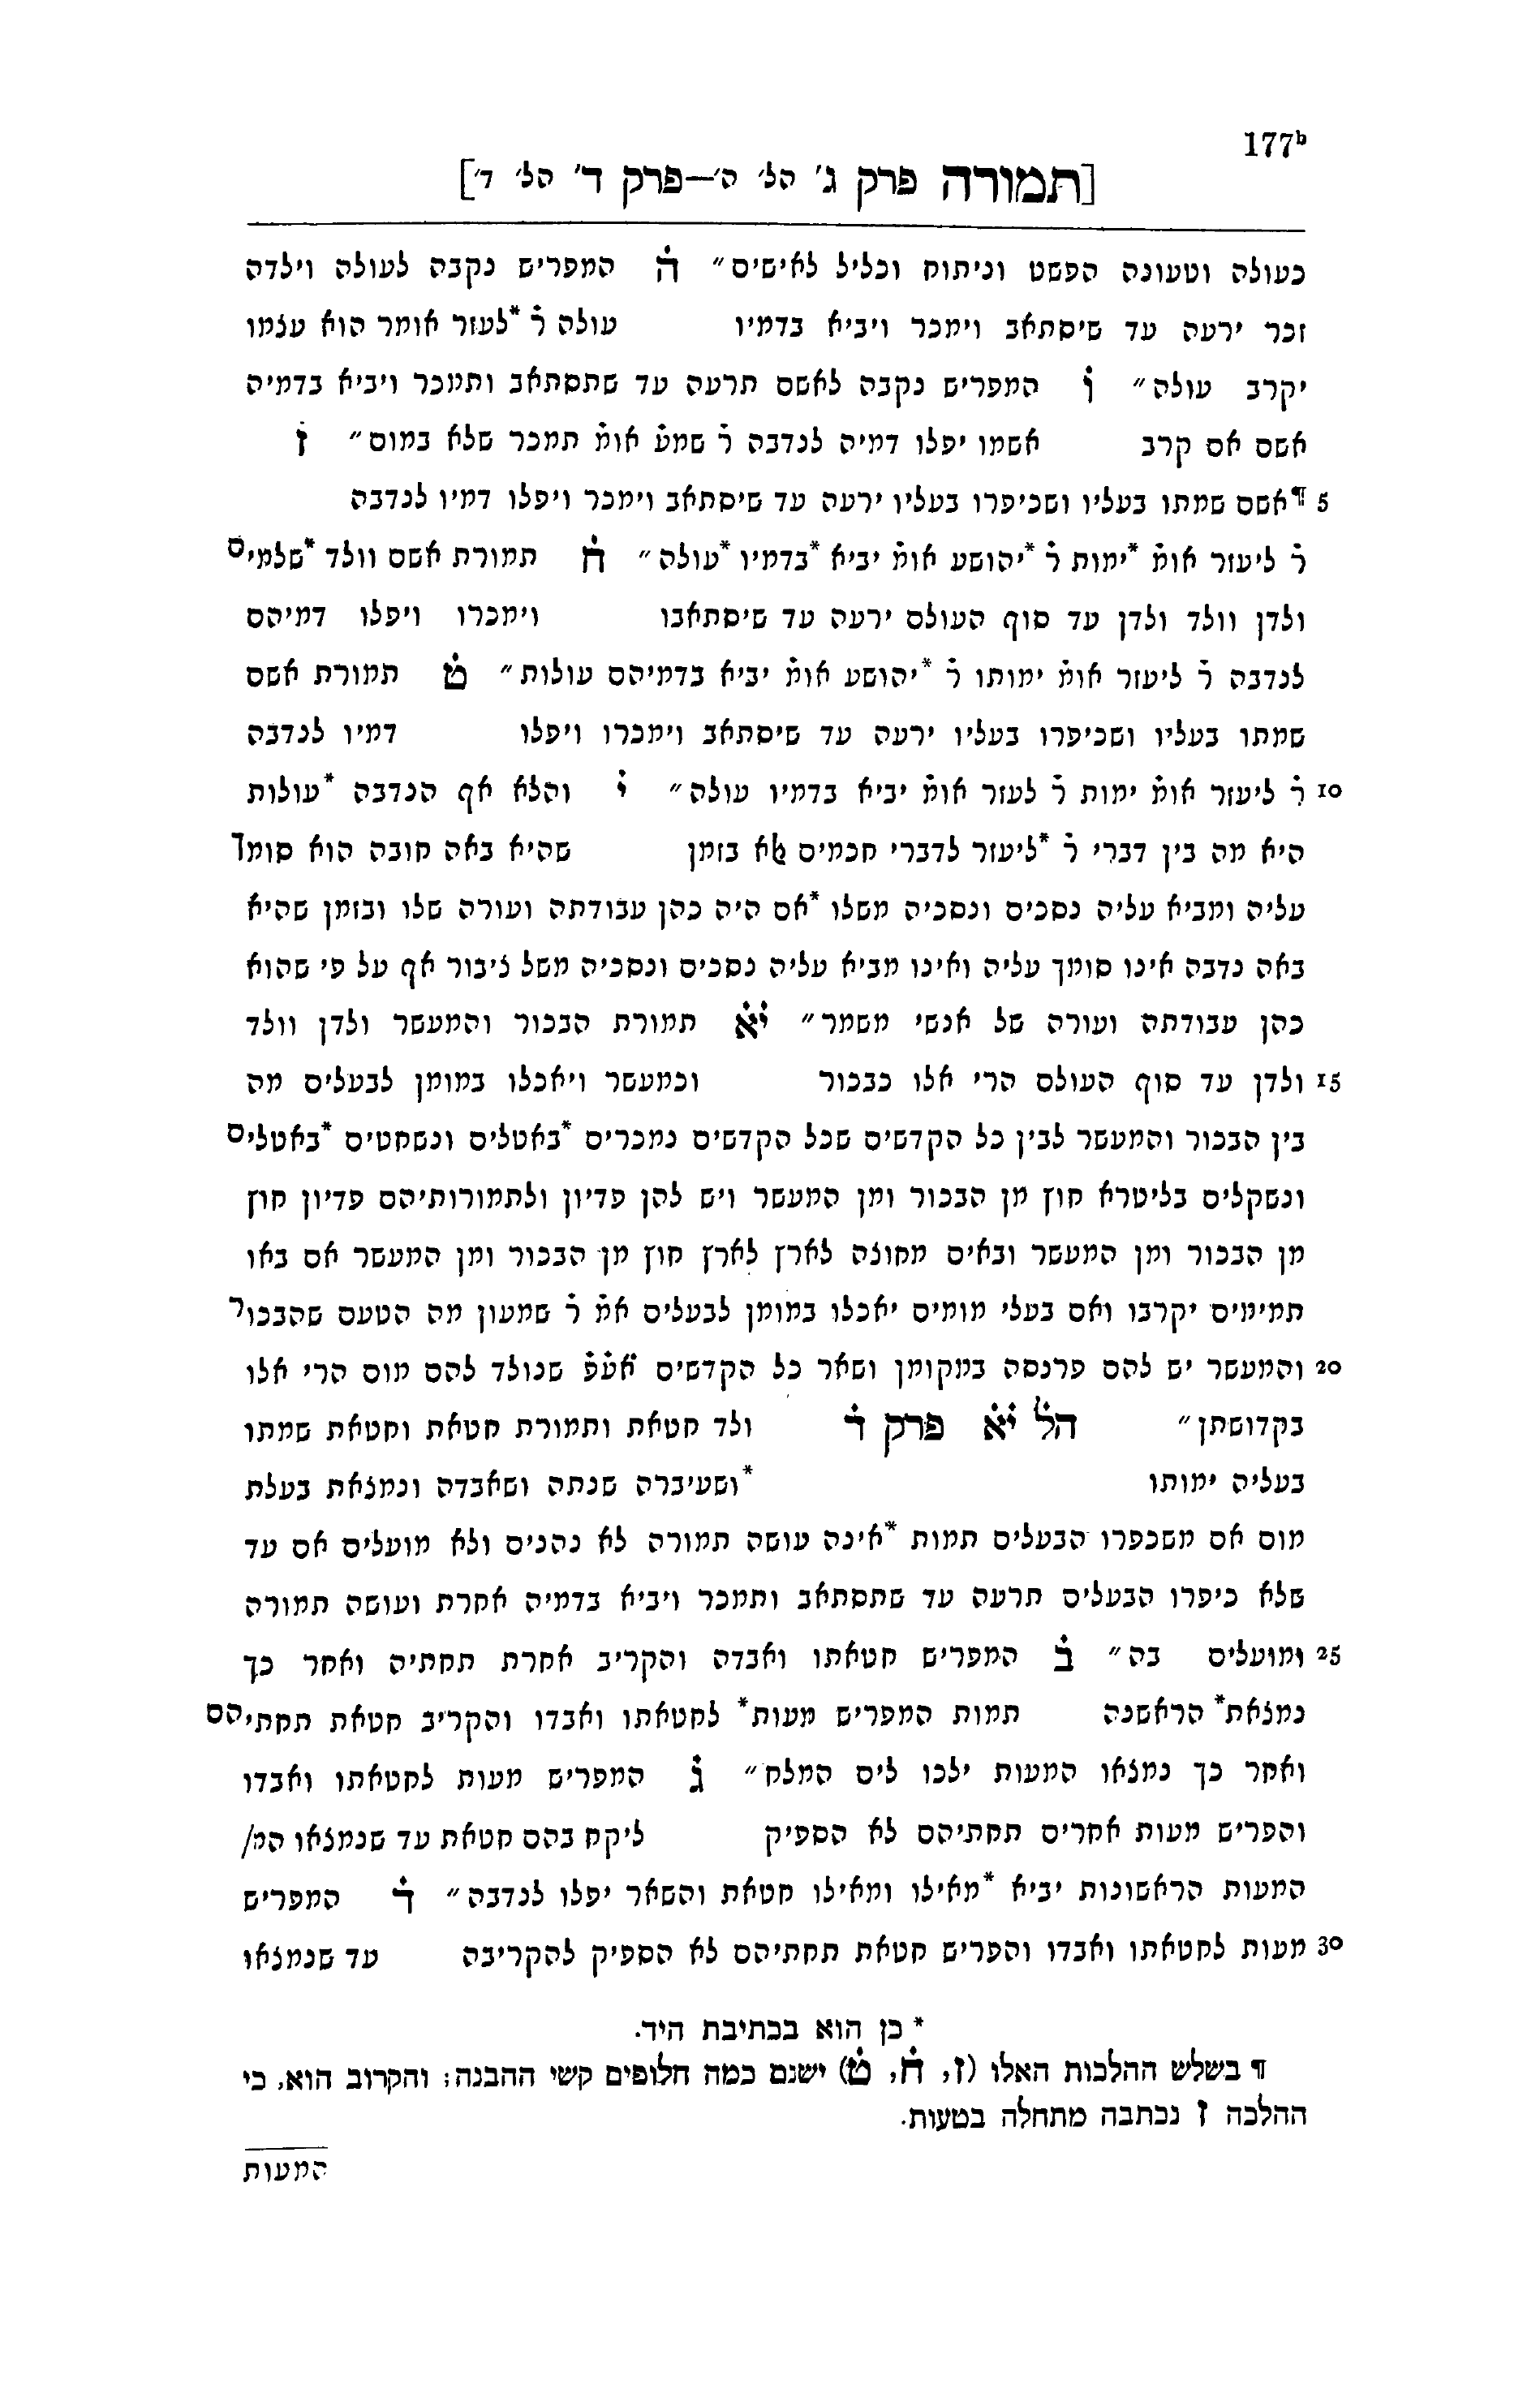 177ᵇ
[תמורה פרק ג' הל' ה'—פרק ד' הל' ד']
כעולה וטעונה הפשט וניתוח וכליל לאישים״ ה̇ המפריש נקבה לעולה וילדה
זכר ירעה עד שיסתאב וימכר ויביא בדמיו עולה ר̇ *לעזר אומר הוא עצמו
יקרב עולה״ ו̇ המפריש נקבה לאשם תרעה עד שתסתאב ותמכר ויביא בדמיה
אשם אם קרב אשמו יפלו דמיה לנדבה ר̇ שמע̇ אומ̇ תמכר שלא במום״ ז̇
5 ¶אשם שמתו בעליו ושכיפרו בעליו ירעה עד שיסתאב וימכר ויפלו דמיו לנדבה
ר̇ ליעזר אומ̇ *ימות ר̇ *יהושע אומ̇ יביא *בדמיו *עולה״ ח̇ תמורת אשם וולד *שלמים
ולדן וולד ולדן עד סוף העולם ירעה עד שיסתאבו וימכרו ויפלו דמיהם
לנדבה ר̇ ליעזר אומ̇ ימותו ר̇ *יהושע אומ̇ יביא בדמיהם עולות״ ט̇ תמורת אשם
שמתו בעליו ושכיפרו בעליו ירעה עד שיסתאב וימכרו ויפלו דמיו לנדבה
10 ר̇ ליעזר אומ̇ ימות ר̇ לעזר אומ̇ יביא בדמיו עולה״ י̇ והלא אף הנדבה *עולות
היא מה בין דברי ר̇ *ליעזר לדברי חכמים אלא בזמן שהיא באה חובה הוא סומך
עליה ומביא עליה נסכים ונסכיה משלו *אם היה כהן עבודתה ועורה שלו ובזמן שהיא
באה נדבה אינו סומך עליה ואינו מביא עליה נסכים ונסכיה משל ציבור אף על פי שהוא
כהן עבודתה ועורה של אנשי משמר״ י̇א̇ תמורת הבכור והמעשר ולדן וולד
15 ולדן עד סוף העולם הרי אלו כבכור וכמעשר ויאכלו במומן לבעלים מה
בין הבכור והמעשר לבין כל הקדשים שכל הקדשים נמכרים *באטלים ונשחטים *באטלים
ונשקלים בליטרא חוץ מן הבכור ומן המעשר ויש להן פדיון ולתמורותיהם פדיון חוץ
מן הבכור ומן המעשר ובאים מחוצה לארץ לארץ חוץ מן הבכור ומן המעשר אם באו
תמימים יקרבו ואם בעלי מומים יאכלו במומן לבעלים אמ̇ ר̇ שמעון מה הטעם שהבכור
20 והמעשר יש להם פרנסה במקומן ושאר כל הקדשים א̇ע̇פ̇ שנולד להם מום הרי אלו
בקדושתן״ הל̇ י̇א̇ פרק ד̇ ולד חטאת ותמורת חטאת וחטאת שמתו
בעליה ימותו *ושעיברה שנתה ושאבדה ונמצאת בעלת
מום אם משכפרו הבעלים תמות *אינה עושה תמורה לא נהנים ולא מועלים אם עד
שלא כיפרו הבעלים תרעה עד שתסתאב ותמכר ויביא בדמיה אחרת ועושה תמורה
25 ומועלים בה״ ב̇ המפריש חטאתו ואבדה והקריב אחרת תחתיה ואחר כך
נמצאת* הראשנה תמות המפריש מעות* לחטאתו ואבדו והקריב חטאת תחתיהם
ואחר כך נמצאו המעות ילכו לים המלח״ ג̇ המפריש מעות לחטאתו ואבדו
והפריש מעות אחרים תחתיהם לא הספיק ליקח בהם חטאת עד שנמצאו המ/
המעות הראשונות יביא *מאילו ומאילו חטאת והשאר יפלו לנדבה״ ד̇ המפריש
30 מעות לחטאתו ואבדו והפריש חטאת תחתיהם לא הספיק להקריבה עד שנמצאו
* כן הוא בכתיבת היד.
¶ בשלש ההלכות האלו (ז̇, ח̇, ט̇) ישנם כמה חלופים קשי ההבנה; והקרוב הוא, כי
ההלכה ז̇ נכתבה מתחלה בטעות.
המעות